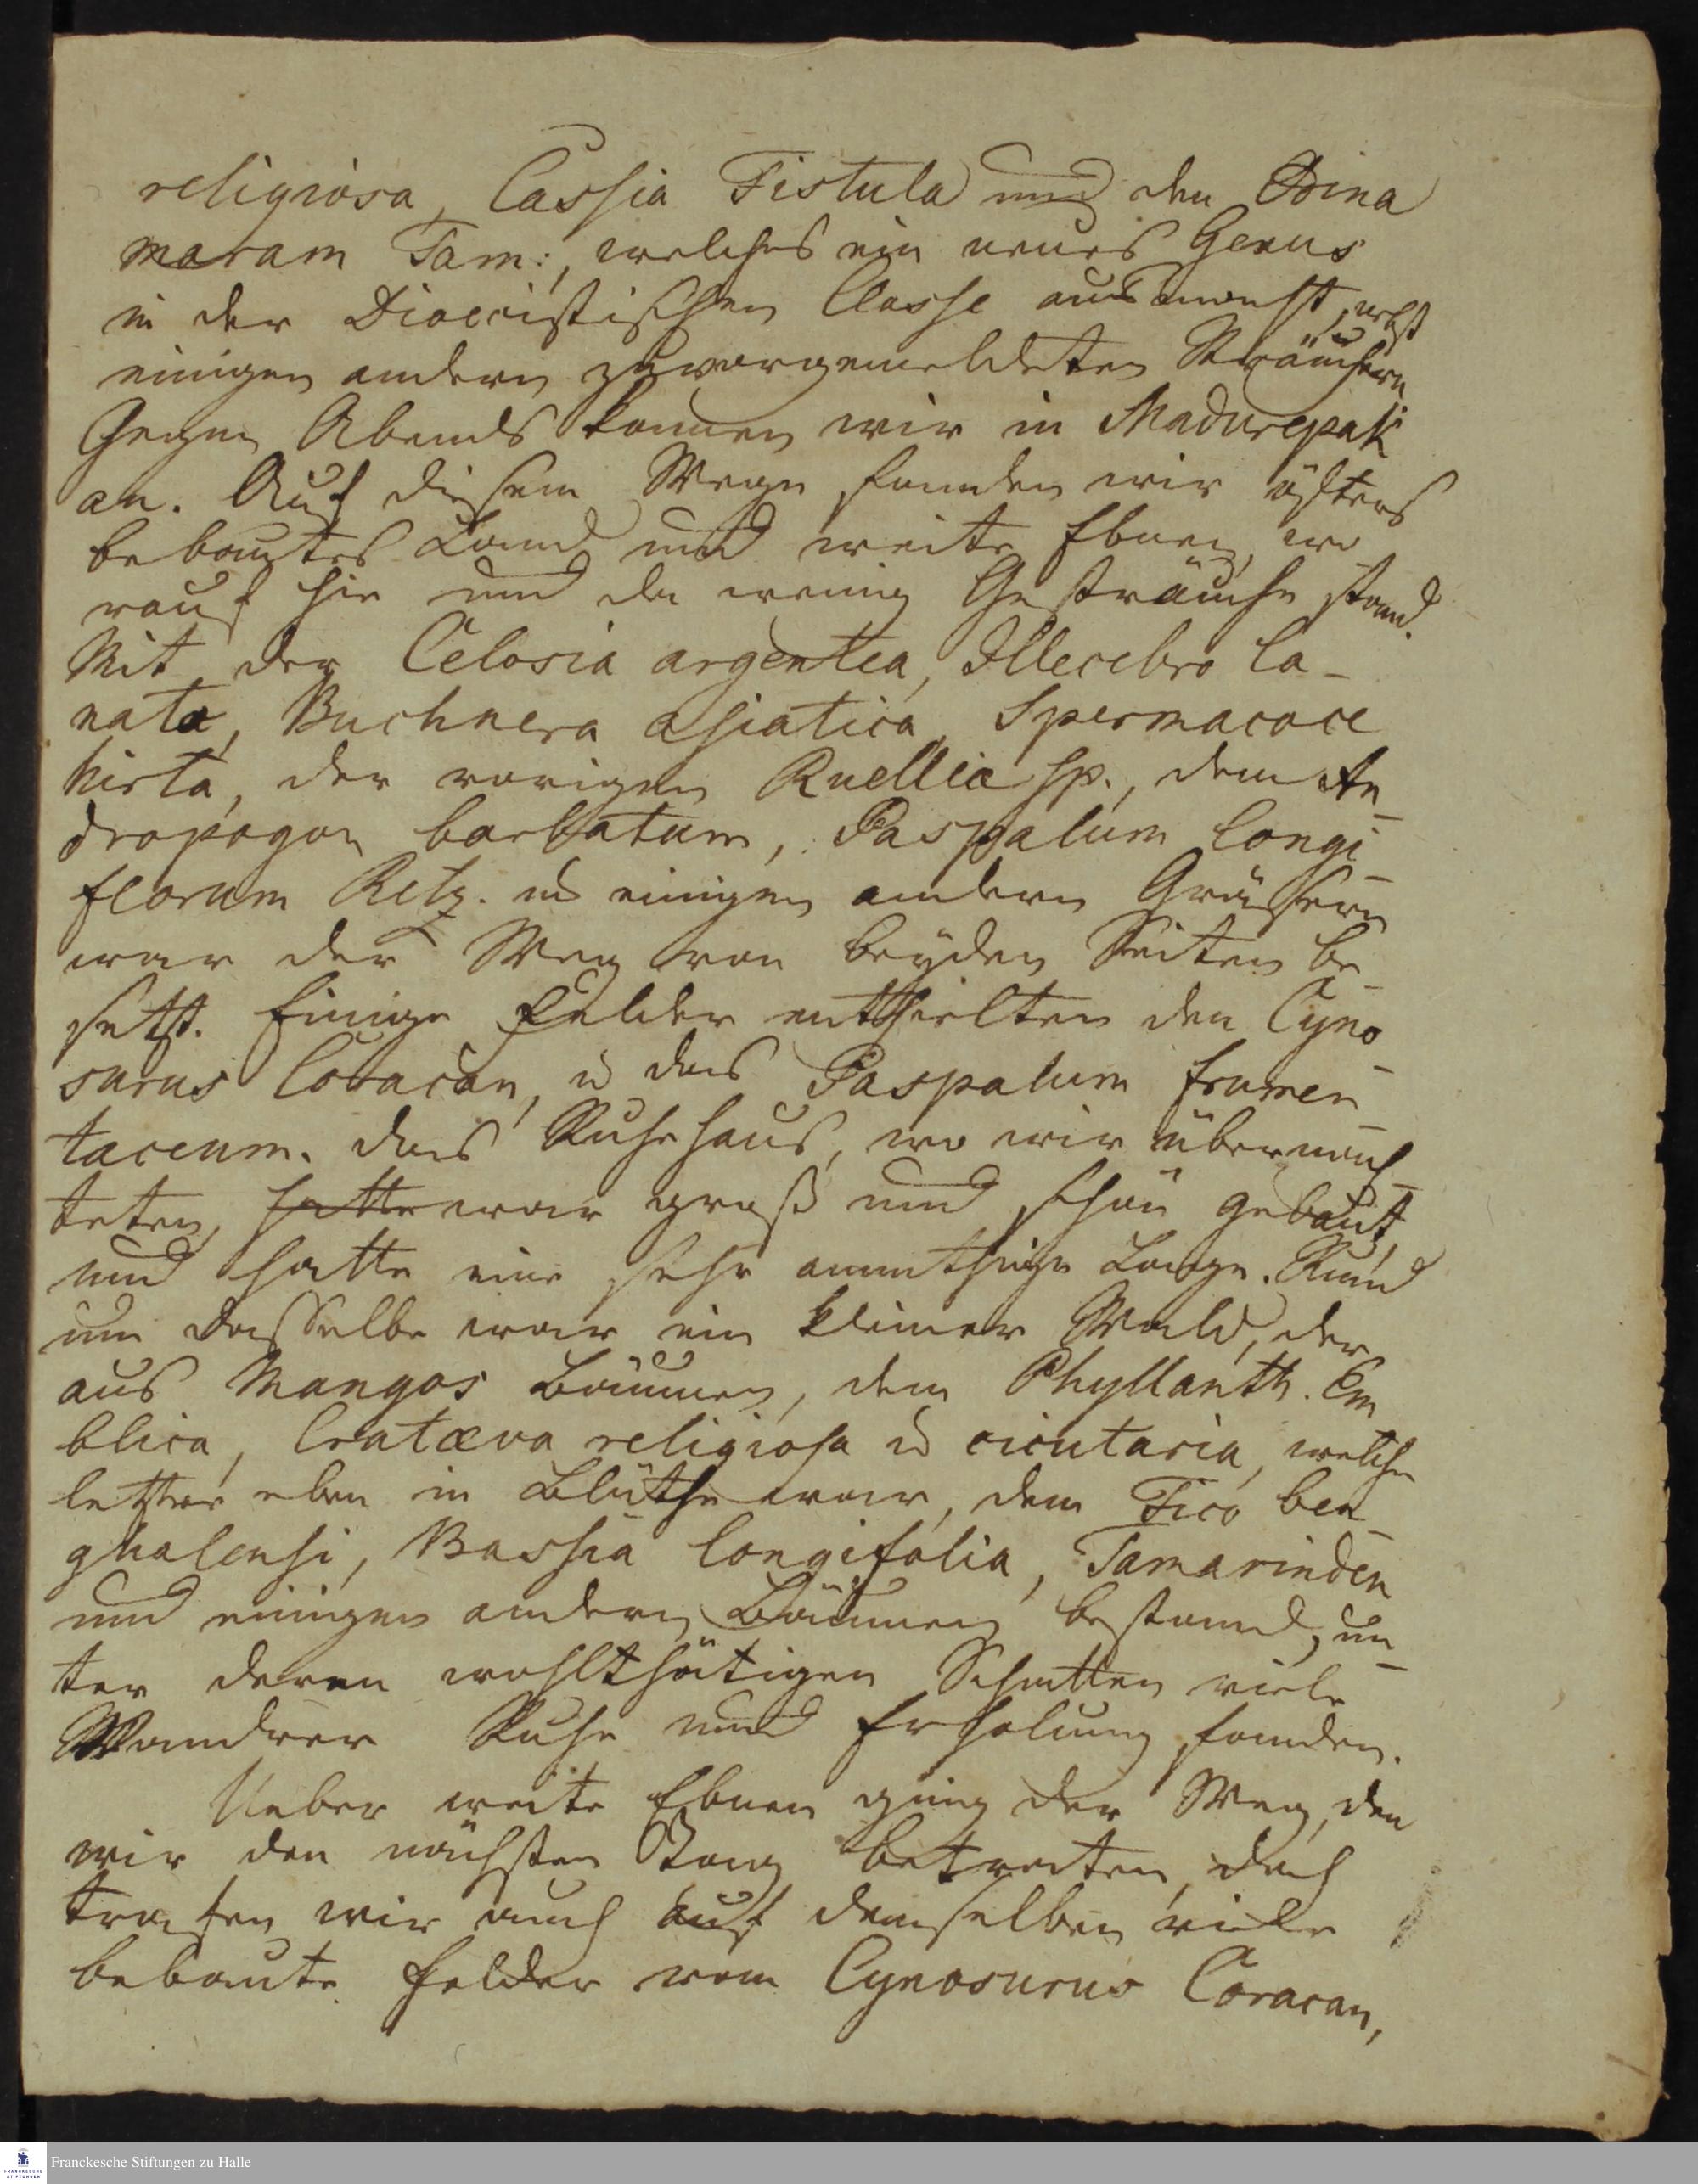 religiosa, Cassia Fistula und den Odina
maram Tam:, welches ein neues Genus
in der Dioecistischen Classe ausmacht, nebst
einigen andern zuvorgemeldeten Sträuchern
Gegen Abends kamen wir in Madurepak
an. Auf diesem Wege fanden wir öfters
bebautes Land und weite Ebnen, wo
rauf hie und da wenig Gesträuche stand.
Mit der Celosia argentea, Illecebro la-
nata, Buchnera asiatica, Spermacoce
hirta, der vorigen Ruellia sp., dem An-
dropogon barbatum, Paspalum longi-
florum Retz. u einigen andern Gräsern
war der Weg von beyden Seiten be-
setzt. Einige Felder enthielten den Cyno-
surus Coracan, u das Paspalum frumen-
taceum. Das Ruhehaus, wo wir übernach-
teten, hatte war groß und schön gebaut,
und hatte eine sehr anmuthige Lage. Rund
um dasselbe war ein kleiner Wald, der
aus Mangos Bäumen, dem Phyllanth. Em
blica, Crataeva religiosa u cicutaria, welche
letztre eben in Blüthe war, dem Fico ben-
ghalensi, Bassia longifolia, Tamarinden
und einigen andern Bäumen bestand, un-
ter deren wohlthätigen Schatten viele
Wandrer Ruhe und Erholung fanden.
Ueber weite Ebnen ging der Weg, den
wir den nächsten Tag betreten, doch
trafen wir auch auf demselben viele
bebaute Felder vom Cynosurus Coracan,
Franckesche Stiftungen zu Halle
FRANCKESCHE
STIFTUNGEN